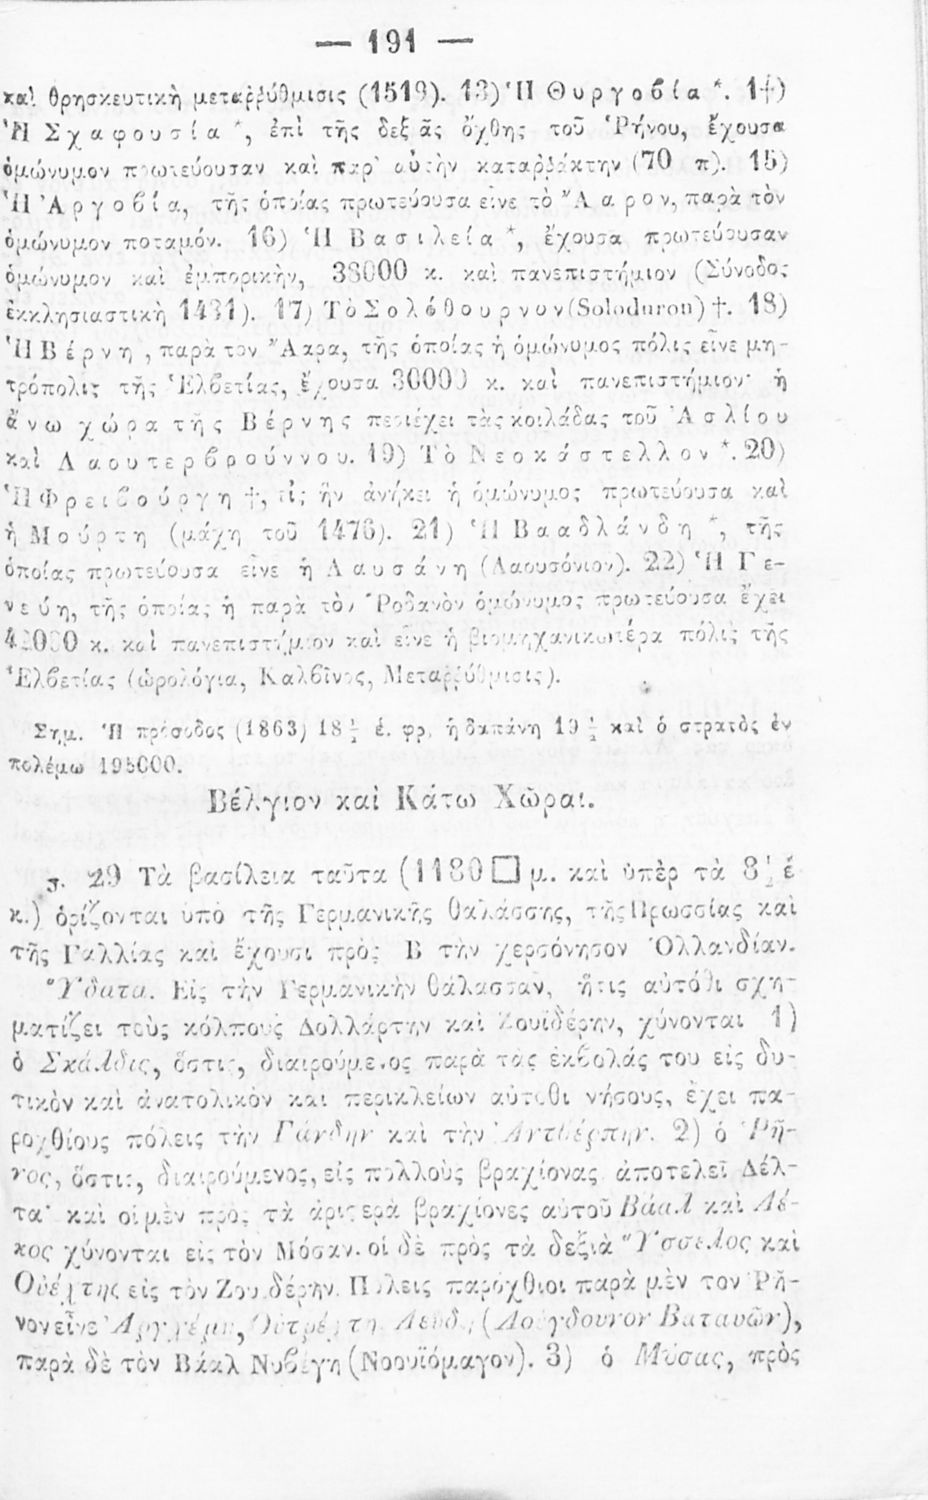 — 191 —
καὶ θρησκευτικὴ μεταῤῥύθμισις (1519). 13) Ἡ Θυργοβία *. 14)
Ἡ Σχαφουσία *, ἐπὶ τῆς δεξιᾶς ὄχθης τοῦ Ῥήνου, ἔχουσα
ὁμώνυμον πρωτεύουσαν καὶ παρ' αὐτὴν καταῤῥάκτην (70 π). 15)
Ἡ Ἀργοβία, τῆς ὁποίας πρωτεύουσα εἶνε τὸ Ἄαρον, παρὰ τὸν
ὁμώνυμον ποταμόν. 16) Ἡ Βασιλεία *, ἔχουσα πρωτεύουσαν
ὁμώνυμον καὶ ἐμπορικὴν, 38000 κ. καὶ πανεπιστήμιον (Σύνοδος
ἐκκλησιαστικὴ 1431). 17) Τὸ Σολόθουρνον (Soloduron) †. 18)
Ἡ Βέρνη, παρὰ τὸν Ἄαρα, τῆς ὁποίας ἡ ὁμώνυμος πόλις εἶνε μη-
τρόπολις τῆς Ἑλβετίας, ἔχουσα 30000 κ. καὶ πανεπιστήμιον· ἡ
ἄνω χώρα τῆς Βέρνης περιέχει τὰς κοιλάδας τοῦ Ἀσλίου
καὶ Λαουτερβρούννου. 19) Τὸ Νεοκάστελλον *. 20)
Ἡ Φρειβούργη †, εἰς ἣν ἀνήκει ἡ ὁμώνυμος πρωτεύουσα καὶ
ἡ Μούρτη (μάχη τοῦ 1476). 21) Ἡ Βααδλάνδη *, τῆς
ὁποίας πρωτεύουσα εἶνε ἡ Λαυσάνη (Λαουσόνιον). 22) Ἡ Γε-
νεύη, τῆς ὁποίας ἡ παρὰ τὸν Ῥοδανὸν ὁμώνυμος πρωτεύουσα ἔχει
κ. καὶ πανεπιστήμιον καὶ εἶνε ἡ βιομηχανικωτέρα πόλις τῆς
Ἑλβετίας (ὡρολόγια, Καλβῖνος, Μεταῤῥύθμισις).
Σημ. Ἡ πρόσοδος (1863) 18 ½ ἑ. φρ, ἡ δαπάνη 19 ½ καὶ ὁ στρατὸς ἐν
πολέμω 195000.
Βέλγιον καὶ Κάτω Χῶραι.
ϛ. 29 Τὰ βασίλεια ταῦτα (1180 □ μ. καὶ ὑπὲρ τὰ 8 ½ ἑ
κ.) ὁρίζονται ὑπὸ τῆς Γερμανικῆς θαλάσσης, τῆς Πρωσσίας καὶ
τῆς Γαλλίας καὶ ἔχουσι πρὸς Β τὴν χερσόνησον Ὁλλανδίαν.
Ὕδατα. Εἰς τὴν Γερμανικὴν θάλασσαν, ἥτις αὐτόθι σχη-
ματίζει τοὺς κόλπους Δολλάρτην καὶ Ζουϊδέρην, χύνονται 1)
ὁ Σκάλδις, ὅστις, διαιρούμενος παρὰ τὰς ἐκβολάς του εἰς δυ-
τικὸν καὶ ἀνατολικὸν καὶ περικλείων αὐτόθι νήσους, ἔχει πα-
ροχθίους πόλεις τὴν Γάνδην καὶ τὴν Ἀντβέρπην. 2) ὁ Ῥῆ-
νος, ὅστις, διαιρούμενος, εἰς πολλοὺς βραχίονας ἀποτελεῖ Δέλ-
τα· καὶ οἱ μὲν πρὸς τὰ ἀριστερὰ βραχίονες αὐτοῦ Βάαλ καὶ Λέ-
κος χύνονται εἰς τὸν Μόσαν. οἱ δὲ πρὸς τὰ δεξιὰ Ὕσσελος καὶ
Οὐέχτης εἰς τὸν Ζουιδέρην. Πόλεις παρόχθιοι παρὰ μὲν τὸν Ῥῆ-
νον εἶνε Οὐτρέχτη, (Λούγδουνον Βαταυῶν),
παρὰ δὲ τὸν Βάαλ Νυβέγη (Νοουϊόμαγον). 3) ὁ Μόσας, πρὸς